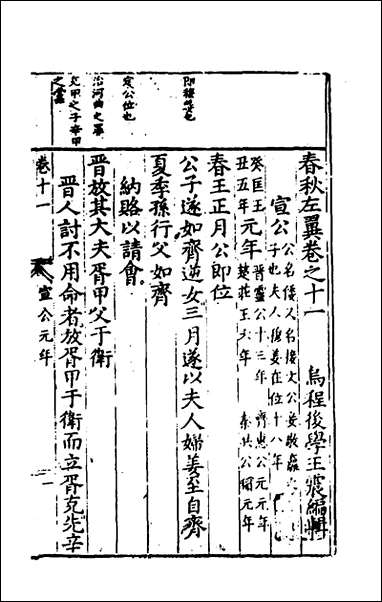 春秋左翼卷之十一
烏程後學王震編輯
宣公
公名倭又名接文公妾敬嬴
子也夫人穆姜在位十八年
癸匡王
丑五年
元年
晉靈公十三年 齊惠公元年
楚莊王六年 秦共公元年
春王正月公即位
公子遂如齊逆女三月遂以夫人婦姜至自齊
夏季孫行父如齊
納賂以請會
晉放其大夫胥甲父于衛
晉人討不用命者放胥甲于衛而立胥克先辛
卷十一
宣公元年
一
即穆姜也
定公位也
治河曲之罪
克甲之子辛甲
之屬